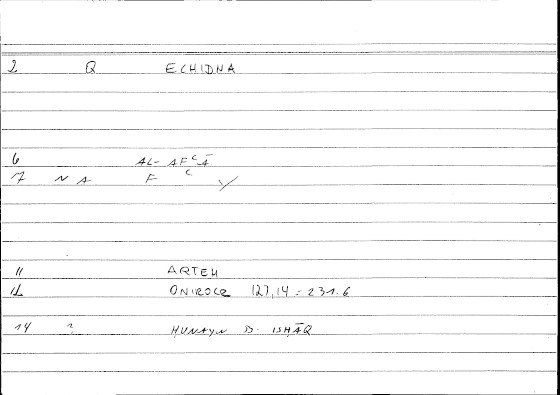 2 Q ECHIDNA
6 AL-AFʿĀ
7 N A F ʿ Y
11 ARTEM
12 ONIROCR 127,14 = 231.6
14 ? ḤUNAYN B. ISḤĀQ